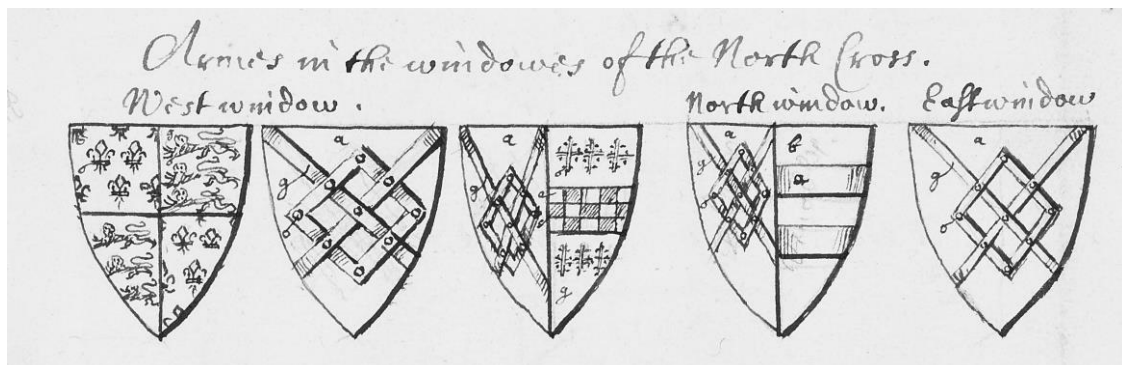 Armes in the windowes of the North Cross.
West window.
North window.
East window
a
g
o
a
g
a
g
a
g
b
a
a
g
o